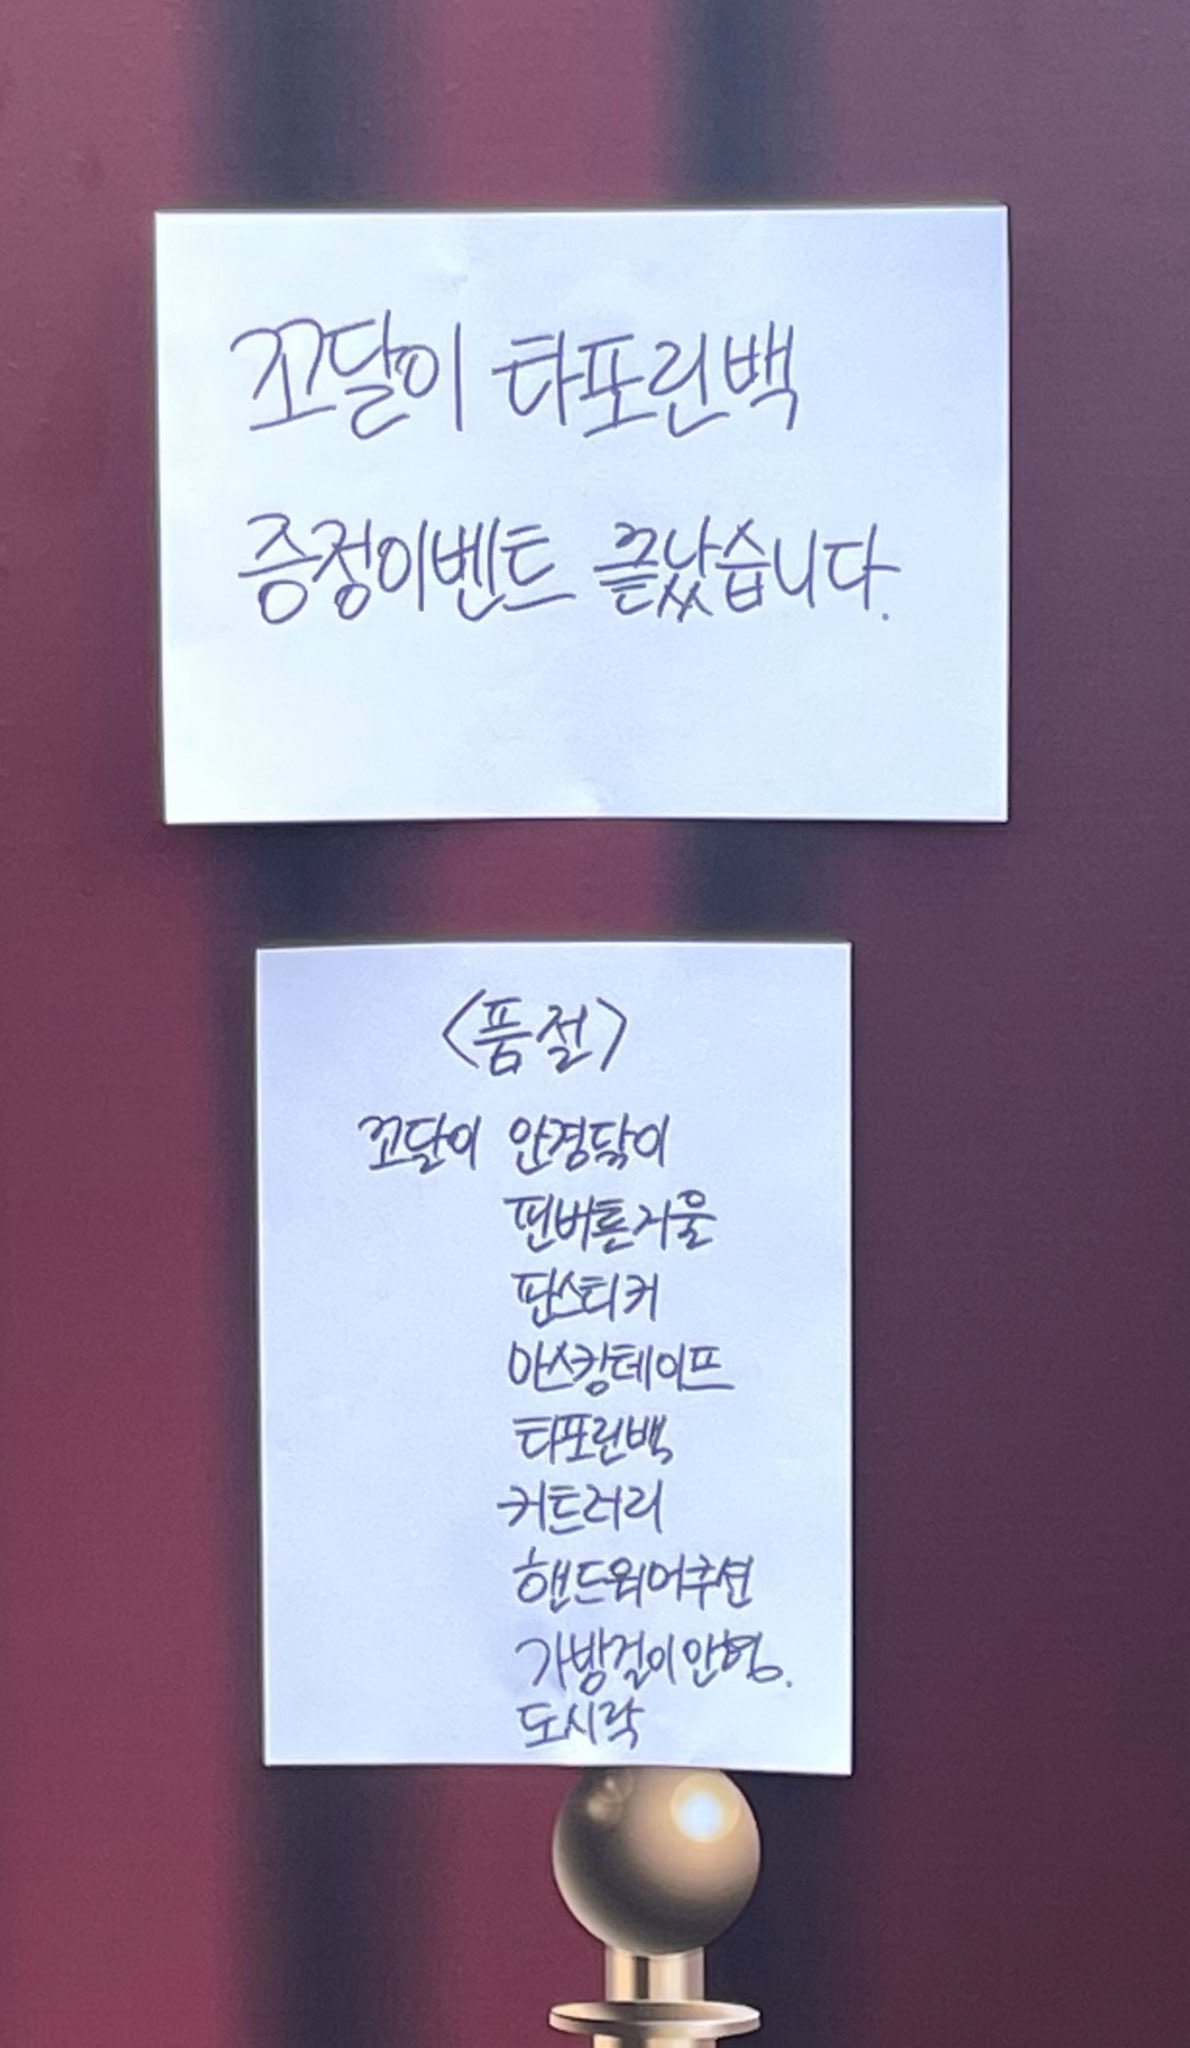 꼬달이 타포린백
증정이벤트 끝났습니다.
<품절>
꼬달이 안경닦이
핀버튼거울
판스티커
마스킹테이프
타포린백
커트러리
핸드워머쿠션
가방걸이인형.
도시락